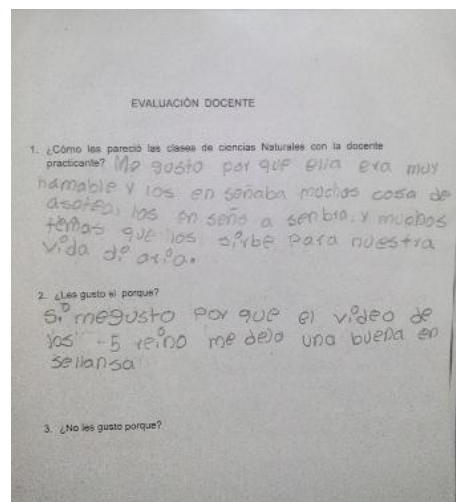 EVALUACIÓN DOCENTE
1. ¿Cómo les pareció las clases de ciencias Naturales con la docente
practicante? Me gosto por que ella era muy
hamable y los en señaba mochas cosa de
los en seño a senbra, y muchos
temas que los sirbe para nuestra
vida di aria.
2. ¿Les gusto si porque?
Si megusto por que el video de
los 5 reino me dejo una buena en
sellansa
3. ¿No les gusto porque?